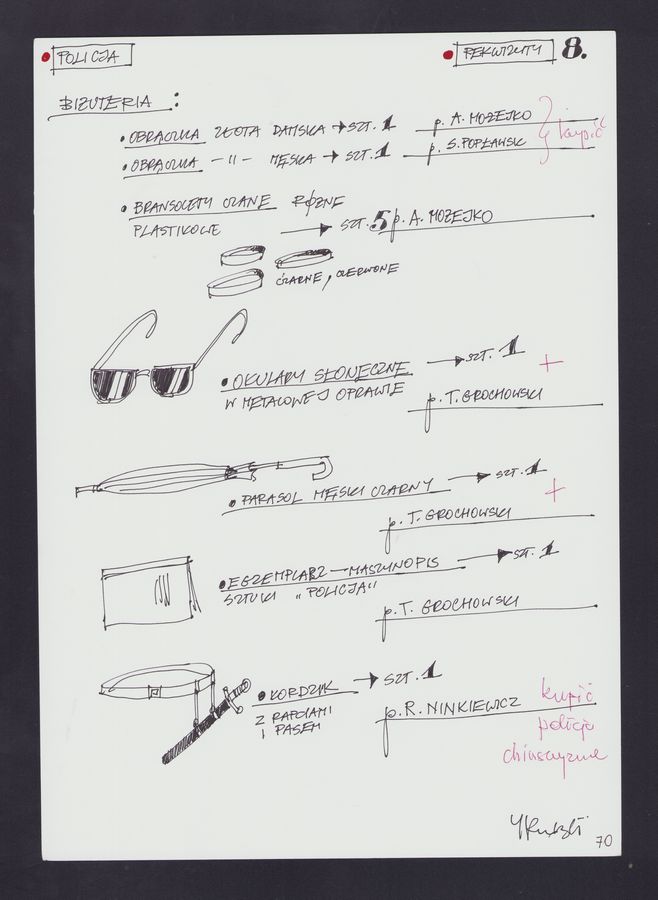 POLICJA
REKWIZYTY 8.
BIŻUTERIA :
• OBRĄCZKA ZŁOTA DAMSKA → SZT. 1 p. A. MOŻEJKO
• OBRĄCZKA — II — MĘSKA → SZT. 1 p. S. POPŁAWSKI
kupić
• BRANSOLETY CZARNE RÓŻNE
PLASTIKOWE → SZT. 5 p. A. MOŻEJKO
CZARNE, CZERWONE
• OKULARY SŁONECZNE → SZT. 1 +
W METALOWEJ OPRAWIE
p. T. GROCHOWSKI
• PARASOL MĘSKI CZARNY → SZT. 1 +
p. T. GROCHOWSKI
• EGZEMPLARZ — MASZYNOPIS → SZT. 1
SZTUKI "POLICJA"
p. T. GROCHOWSKI
• KORDZIK → SZT. 1
Z RAPCIAMI
I PASEM
p. R. NINKIEWICZ
kupić
policja
70